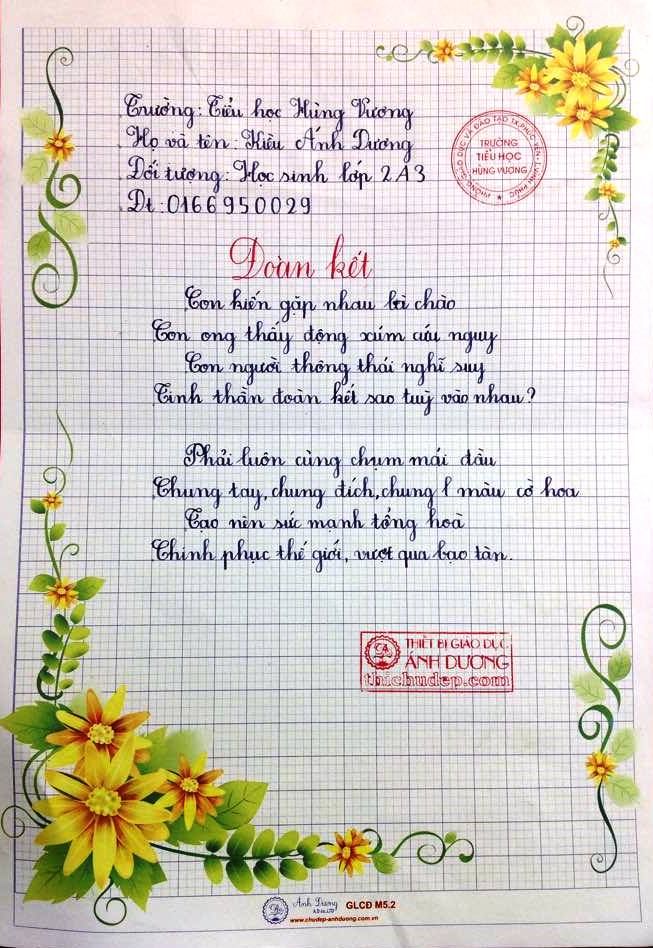 Trường: Tiểu học Hùng Vương
Họ và tên: Kiều Ánh Dương
Đối tượng: Học sinh lớp 2A3
Đt: 0166950029
PHÒNG GIÁO DỤC VÀ ĐÀO TẠO TX.PHÚC YÊN - T.VĨNH PHÚC
TRƯỜNG
TIỂU HỌC
HÙNG VƯƠNG
Đoàn kết
Con kiến gặp nhau là chào
Con ong thấy động xúm cứu nguy
Con người thông thái nghĩ suy
Tinh thần đoàn kết sao tuỳ vào nhau?
Phải luôn cùng chụm mái đầu
Chung tay, chung đích, chung 1 màu cờ hoa
Tạo nên sức mạnh tổng hoà
Chinh phục thế giới, vượt qua bạo tàn.
THIẾT BỊ GIÁO DỤC
ÁNH DƯƠNG
thichudep.com
Ánh Dương GLCĐ M5.2
www.chudep-anhduong.com.vn